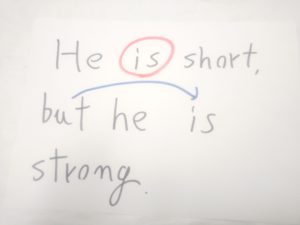 He is short,
but he is
strong.